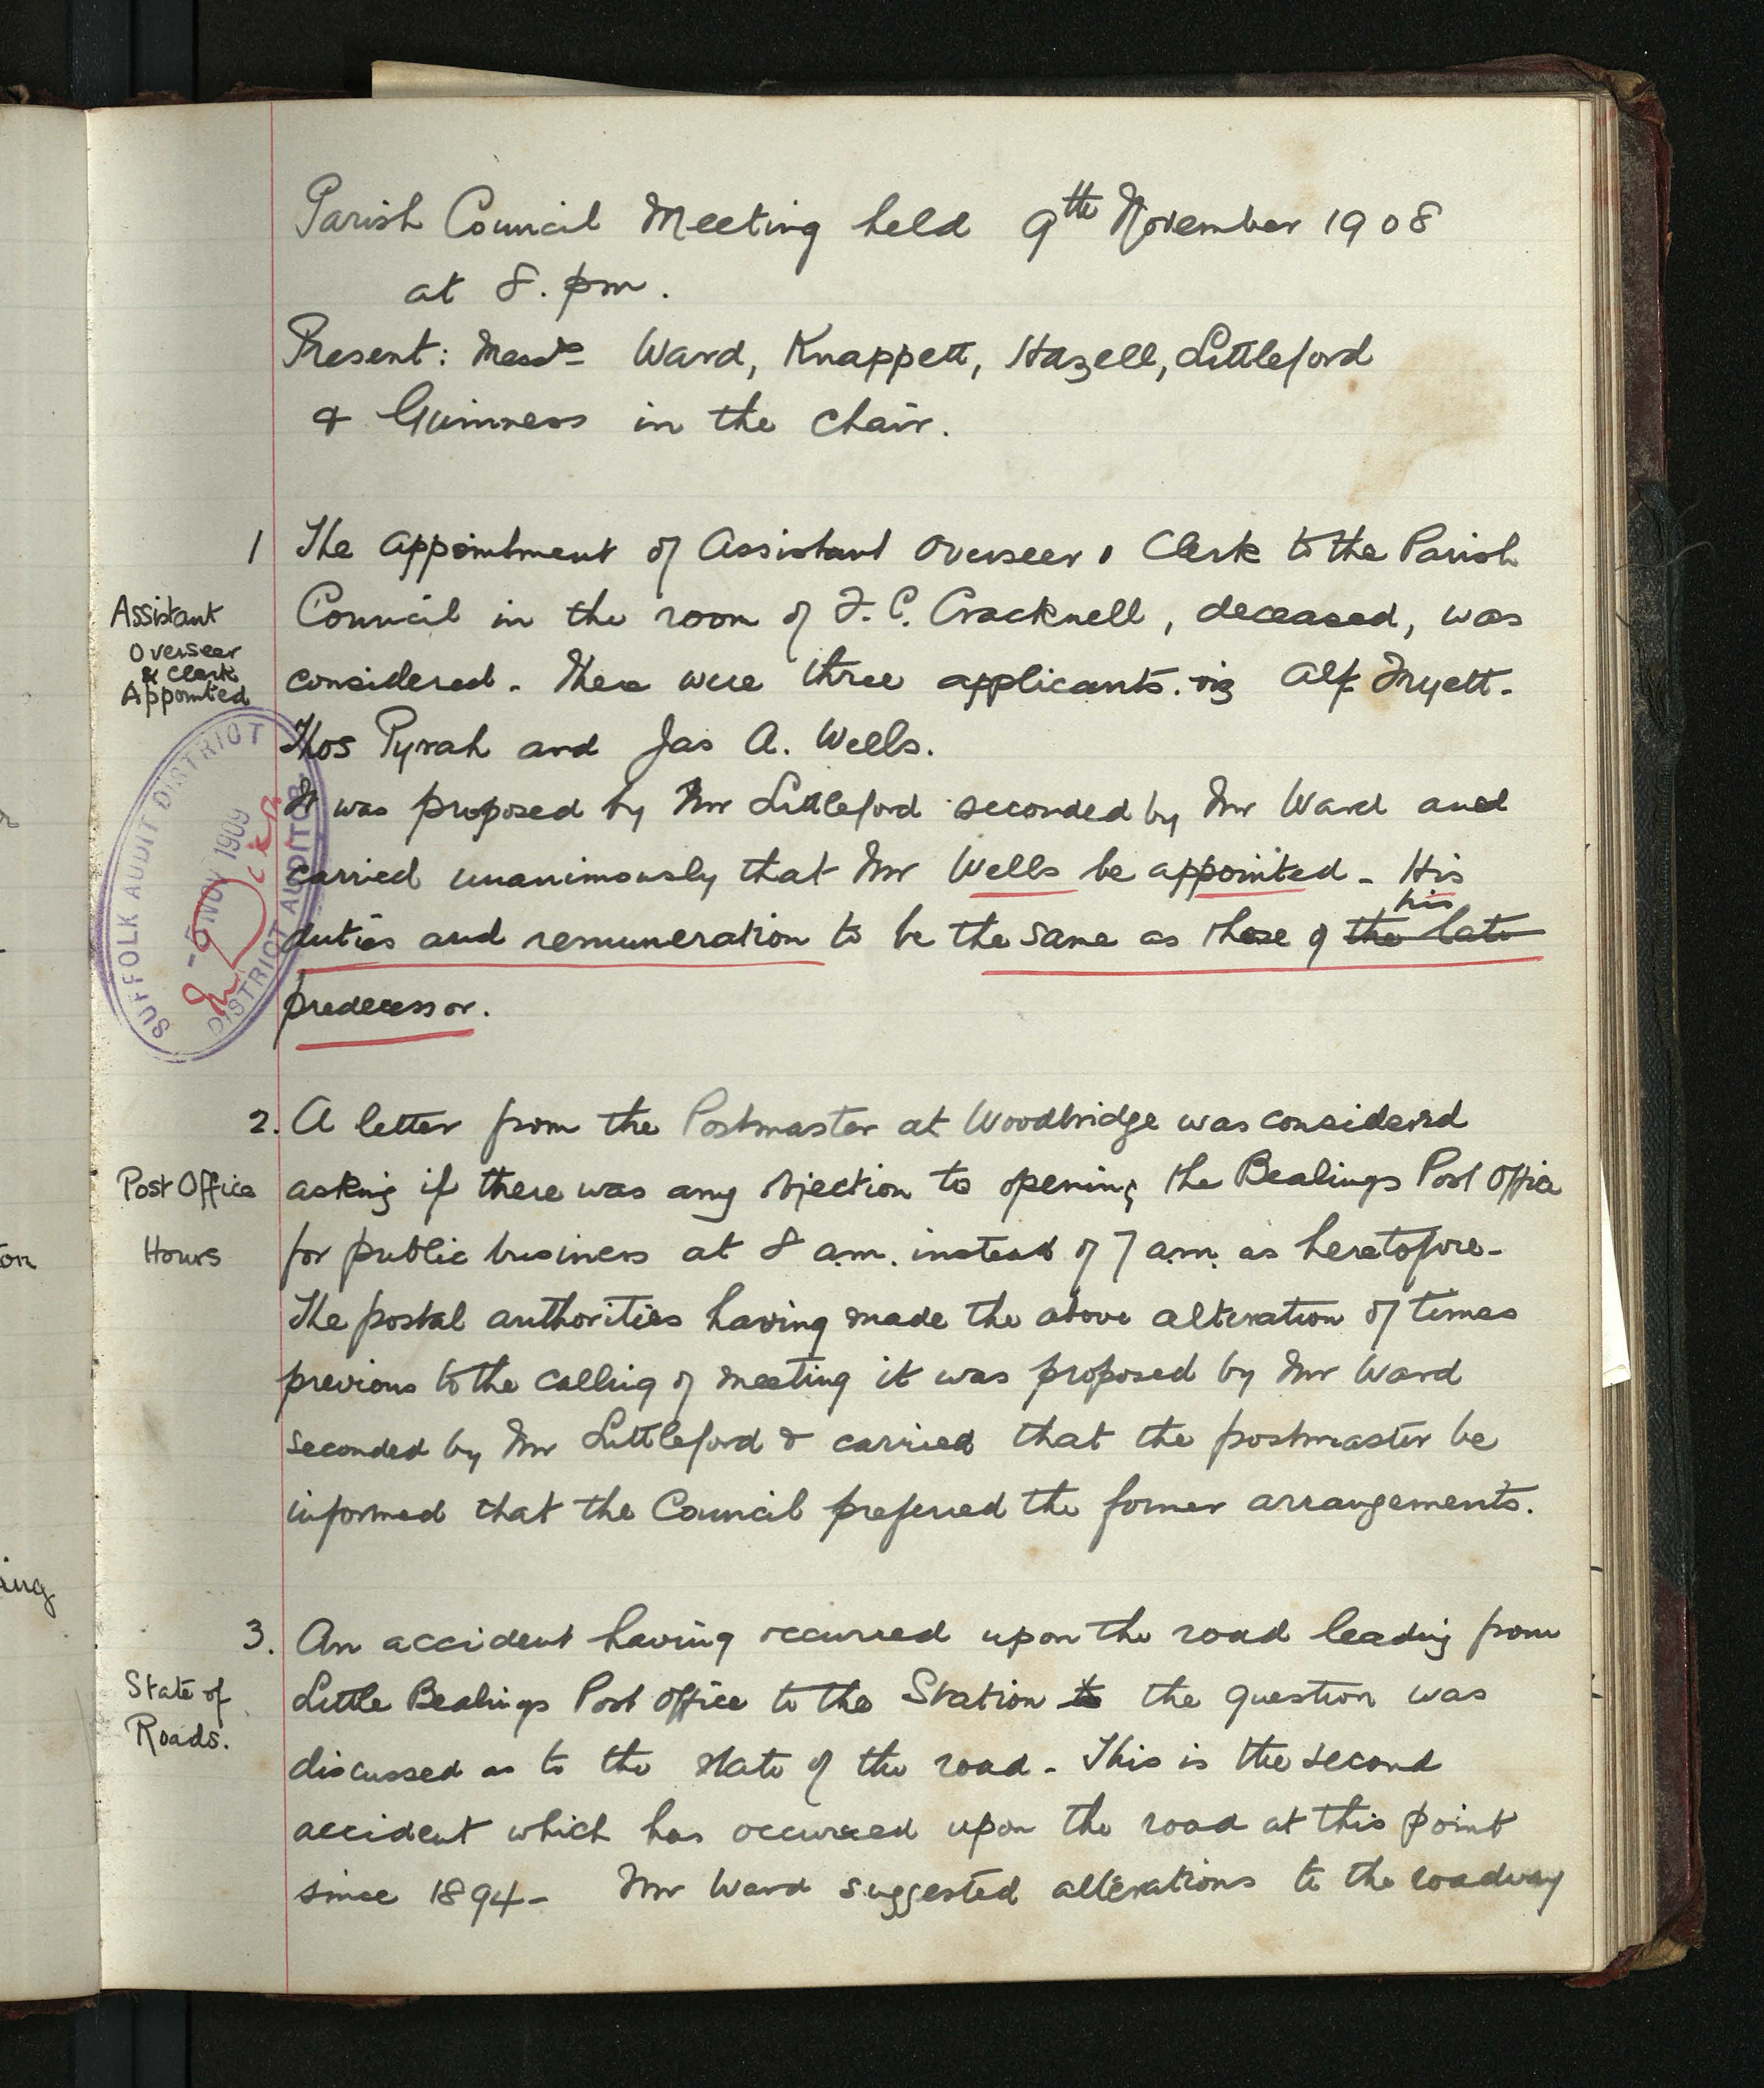 Parish Council Meeting held 9th November 1908
at 8. pm.
Present: Messrs Ward, Knappett, Hazell, Littleford
& Guinness in the chair.
1 The appointment of Assistant Overseer & Clerk to the Parish
Assistant
Overseer
& Clerk
Appointed
Council in the room of F. C. Cracknell, deceased, was
considered. There were three applicants. viz Alf Fryett.
Thos Pyrah and Jas A. Wells.
It was proposed by Mr Littleford seconded by Mr Ward and
carried unanimously that Mr Wells be appointed. His
his
duties and remuneration to be the same as those of the late
predecessor.
SUFFOLK AUDIT DISTRICT
-9 NOV 1909
DISTRICT AUDITOR
2. A letter from the Postmaster at Woodbridge was considered
Post Office
Hours
asking if there was any objection to opening the Bealings Post Office
for public business at 8 a.m. instead of 7 a.m. as heretofore-
The postal authorities having made the above alteration of times
previous to the calling of meeting it was proposed by Mr Ward
seconded by Mr Littleford & carried that the postmaster be
informed that the Council preferred the former arrangements.
3. An accident having occurred upon the road leading from
State of
Roads.
Little Bealings Post Office to the Station to the question was
discussed as to the state of the road - This is the second
accident which has occurred upon the road at this point
since 1894 - Mr Ward suggested alterations to the roadway